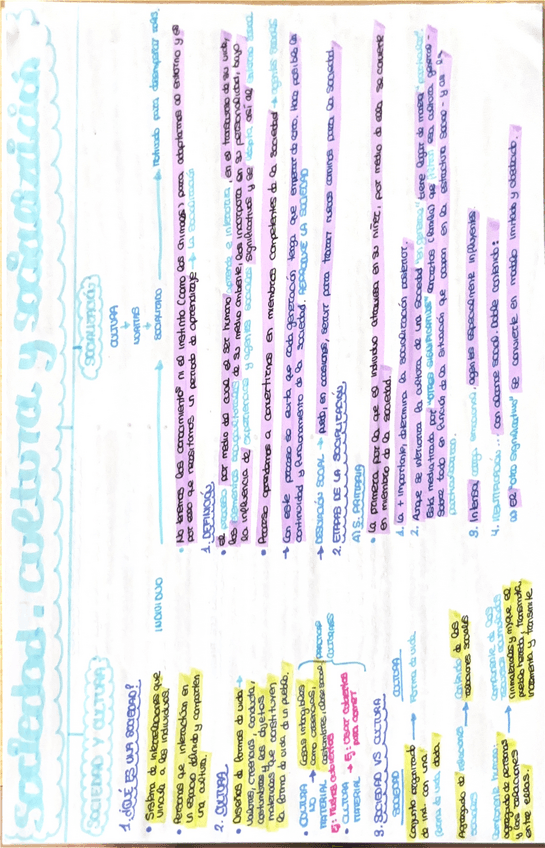 Sociedad, cultura y socialización
SOCIEDAD Y CULTURA
1. ¿QUÉ ES UNA SOCIEDAD?
• Sistema de interrelaciones que
vincula a los individuos.
• Personas que interactúan en
un espacio definido y comparten
una cultura.
2. CULTURA
• Diseños de formas de vida →
valores, creencias, conducta,
costumbres y los objetos
materiales que constituyen
la forma de vida de un pueblo.
• CULTURA NO MATERIAL → Cosas intangibles
como creencias,
costumbres, clase social
• CULTURA MATERIAL → Ej: usar cubiertos
para comer
3. SOCIEDAD VS CULTURA
SOCIEDAD CULTURA
Conjunto organizado
de ind. con una
forma de vida dada.
Forma de vida.
Agregado de relaciones
sociales
Contenido de las
relaciones sociales
Componente humano:
agregado de personas
y las relaciones
entre ellas.
componente de los
recursos acumulados
inmateriales y
pueblo hereda, transmuta,
incrementa y transmite
SOCIALIZACIÓN
CULTURA
+
NORMAS
+
INDIVIDUO → SOCIALIZADO → Motivado para desempeñar roles.
• No tenemos los conocimientos ni el instinto (como los animales) para adaptarnos al entorno y es
por eso que necesitamos un periodo de aprendizaje → la socialización
1. DEFINICIÓN
• El proceso por medio del cual el ser humano aprende e interioriza, en el transcurso de su vida,
los elementos socioculturales de su medio ambiente, los incorpora en su personalidad, bajo
la influencia de experiencias y agentes sociales significativos y se adapta así al
• Proceso aprendemos a convertirnos en miembros competentes de la sociedad → agentes sociales
→ Con este proceso se evita que cada generación tenga que empezar de cero. Hace posible la
continuidad y funcionamiento de la sociedad. REPRODUCE LA SOCIEDAD
→ DESVIACIÓN SOCIAL → puede, en ocasiones, servir para trazar nuevos caminos para la sociedad.
2. ETAPAS DE LA SOCIALIZACIÓN
A) S. PRIMARIA
• La primera por la que el individuo atraviesa en su niñez, por medio de ella se convierte
en miembro de la sociedad.
1. La + importante, determina la socialización posterior.
2. Aunque se interioriza la cultura de una sociedad tiene lugar de manera particular.
Está mediatizada por "OTROS SIGNIFICATIVOS" concretos (familia) que esa cultura general -
sobre todo en función de la situación que ocupan en la estructura social - y la
3. Intensa carga emocional: agentes especialmente influyentes.
4. IDENTIFICACIÓN... con alcance social: doble contenido:
a) El "otro significativo" se convierte en modelo imitado y obedecido.